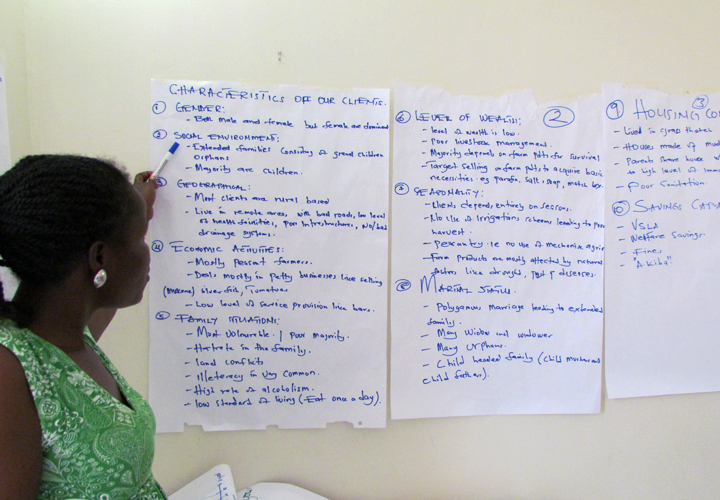 CHARACTERISTICS OFF OUR CLIENTS.
① GENDER:
- Both male and female but female are dominant
② SOCIAL ENVIRONMENT:
- Extended families Consisting of grand children
Orphans
- Majority are children.
③ GEOGRAPHICAL:
- Most clients are rural based
- Live in remote areas, with bad roads, low level
of health facilities, poor infrastructures, no/bad
drainage systems.
④ ECONOMIC ACTIVITIES:
- Mostly peasant farmers.
- Deals mostly in petty businesses like selling
silver fish, Tomatoes
- Low level of service provision like bars.
⑤ FAMILY SITUATIONS:
- Most vulnerable / poor majority.
- Hatrate in the family.
- land conflicts
- Illeteracy is very common.
- High rate of alcoholism.
- low standard of living (Eat once a day).
②
⑥ LEVEL OF WEALTH:
- level of wealth is low.
- Poor livestock management.
- Majority depends on farm pdts for survival
- Target selling of farm pdts to acquire basic
necessities eg parafin, salt, soap, match box.
⑦ SEASONALITY:
- Clients depend entirely on seasons.
- No use of irrigations schemes leading to poor
harvest.
- Peasantry i.e no use of mechanize agric
- Farm products are mostly affected by natural
factors like drought, pest & diseases.
⑧ MARITAL STATUS.
- Polygamous marriage leading to extended
family.
- Many widow and widower
- Many orphans.
- Child headed family (child mother and
child father).
③
⑨ HOUSING CO
- Lived in grass thates
- House made of mud
- Parents share house w
to high level of
- Poor Sanitation.
⑩ SAVINGS CAPA
- VSLA
- Welfare savings
- Fines
- "Akiba"